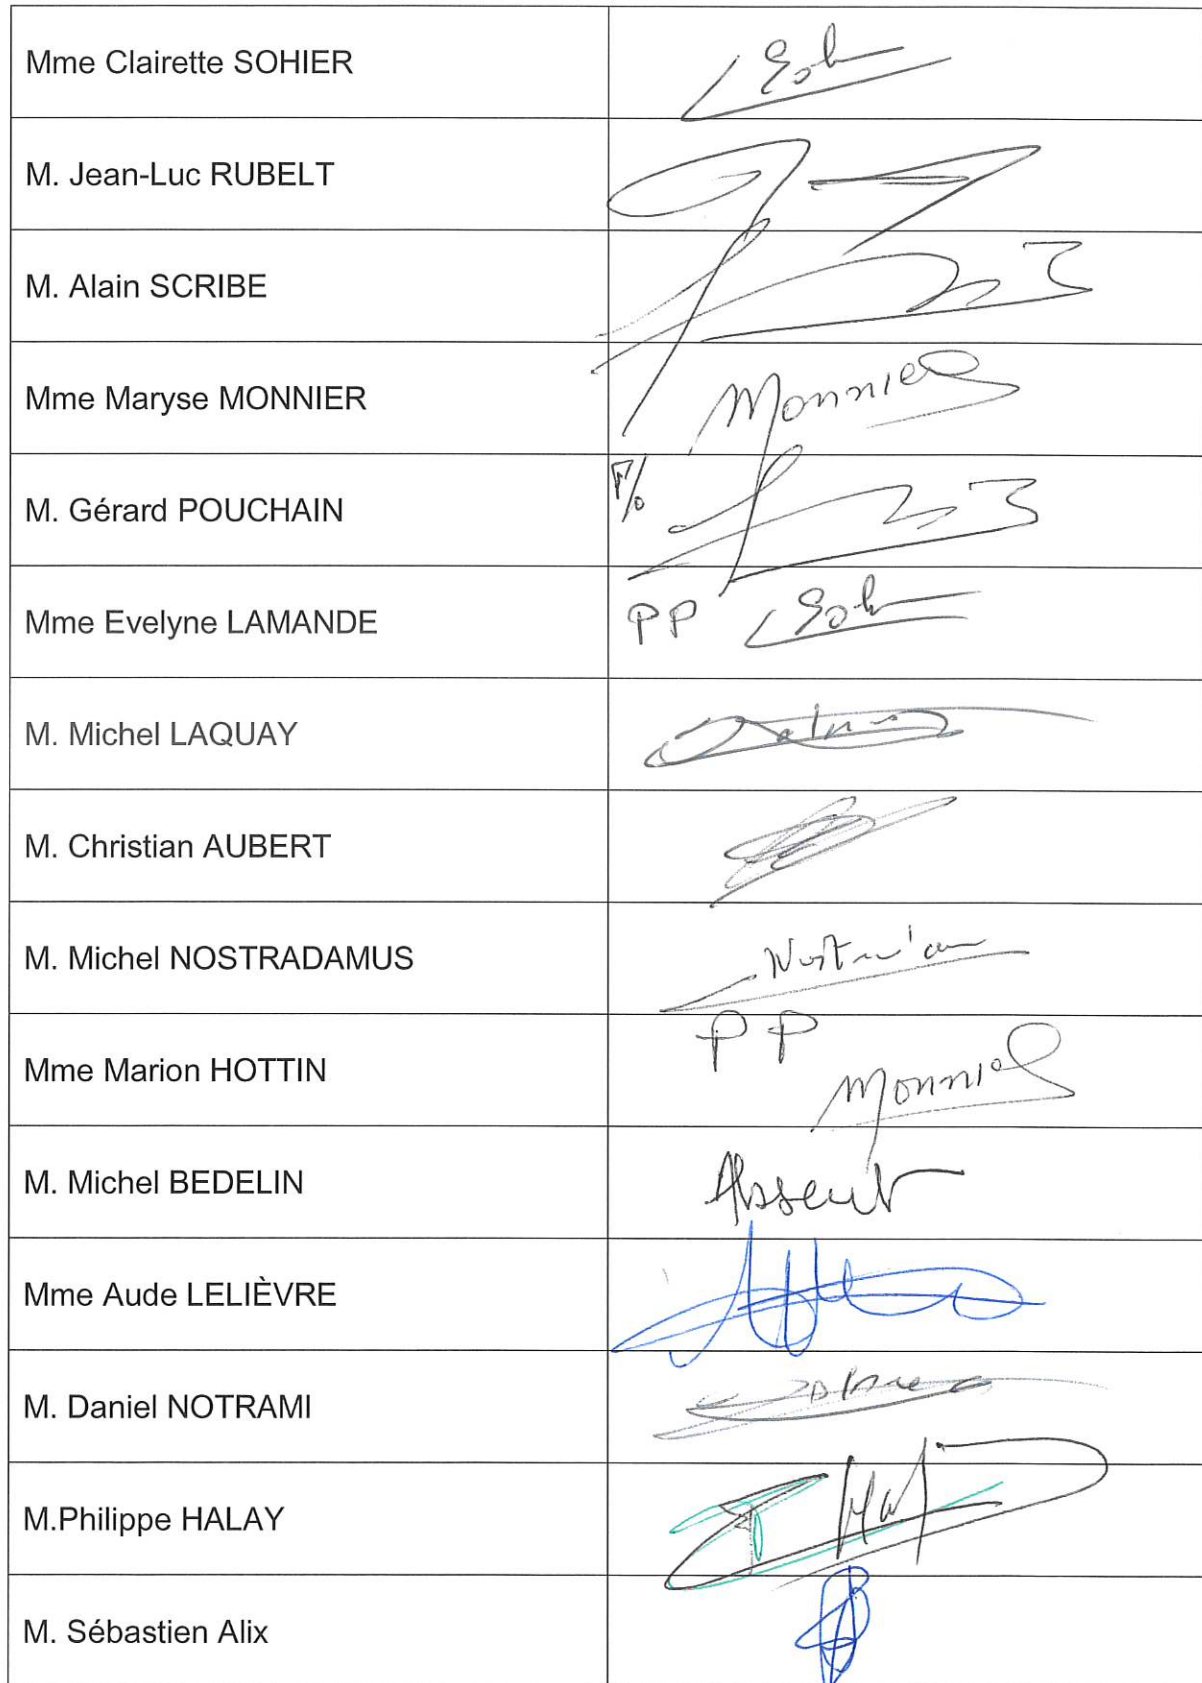 Mme Clairette SOHIER
M. Jean-Luc RUBELT
M. Alain SCRIBE
Mme Maryse MONNIER Monnier
M. Gérard POUCHAIN P/o
Mme Evelyne LAMANDE PP
M. Michel LAQUAY
M. Christian AUBERT
M. Michel NOSTRADAMUS
Mme Marion HOTTIN PP Monnier
M. Michel BEDELIN Absent
Mme Aude LELIÈVRE
M. Daniel NOTRAMI
M.Philippe HALAY
M. Sébastien Alix